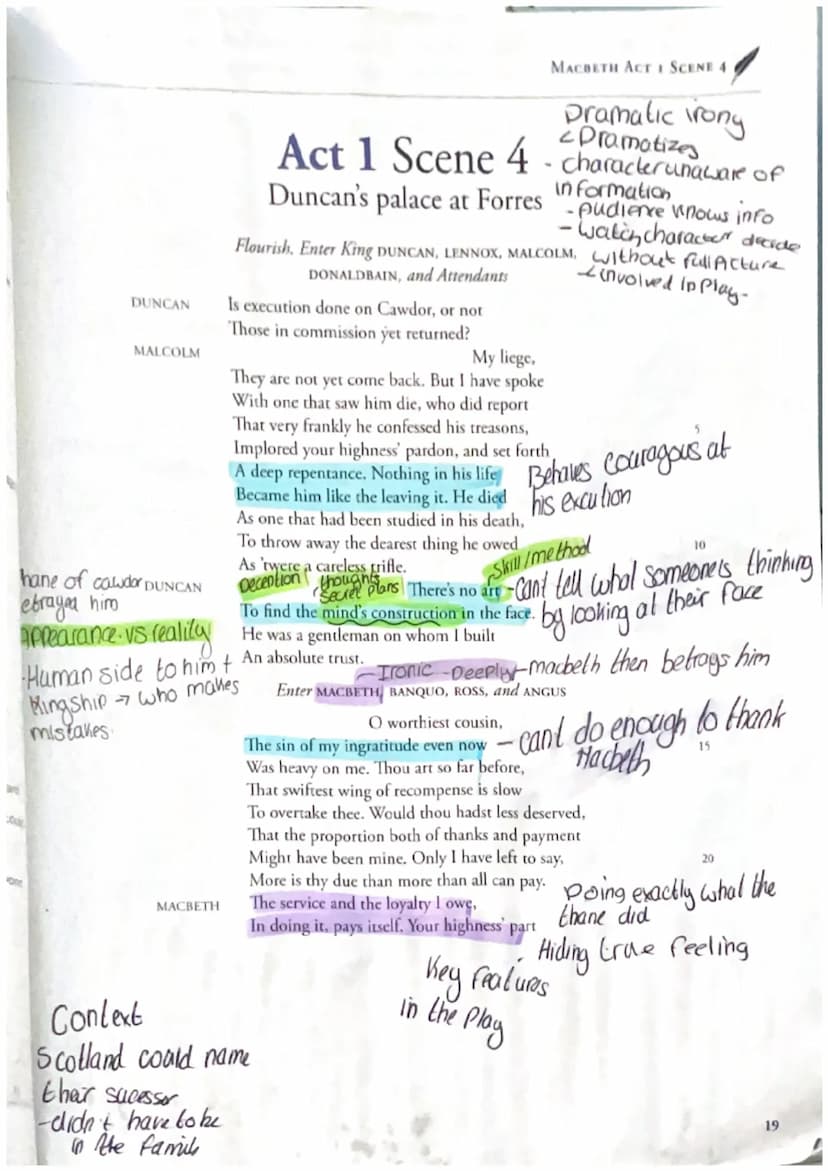 MACBETH ACT 1 SCENE 4
Dramatic irony
<Dramatizes
Act 1 Scene 4
- character unaware of
information
Duncan's palace at Forres
- Audience knows info
- watch character decide
without full Picture
< involved in Play-
Flourish. Enter King DUNCAN, LENNOX, MALCOLM,
DONALDBAIN, and Attendants
DUNCAN Is execution done on Cawdor, or not
Those in commission yet returned?
MALCOLM My liege,
They are not yet come back. But I have spoke
With one that saw him die, who did report
That very frankly he confessed his treasons, 5
Implored your highness' pardon, and set forth
A deep repentance. Nothing in his life
Became him like the leaving it. He died
Behaves couragous at
his excution
As one that had been studied in his death,
To throw away the dearest thing he owed 10
As 'twere a careless trifle.
skill/method
Deception
thoughts
secret plans
DUNCAN There's no art
To find the mind's construction in the face.
- can't tell what someone is thinking
by looking at their face
hane of cawdor
etrayed him
appearance vs reality
He was a gentleman on whom I built
An absolute trust.
- Ironic - Deeply - macbeth then betrays him
- Human side to him +
Kingship → who makes
mistakes.
Enter MACBETH, BANQUO, ROSS, and ANGUS
O worthiest cousin,
The sin of my ingratitude even now 15
- can't do enough to thank
Macbeth
Was heavy on me. Thou art so far before,
That swiftest wing of recompense is slow
To overtake thee. Would thou hadst less deserved,
That the proportion both of thanks and payment
Might have been mine. Only I have left to say, 20
More is thy due than more than all can pay.
MACBETH The service and the loyalty I owe,
In doing it, pays itself. Your highness' part
Doing exactly what the
thane did
. Hiding true feeling
Key features
in the Play
Context
Scotland could name
their sucessor
-didn't have to be
in the family
19